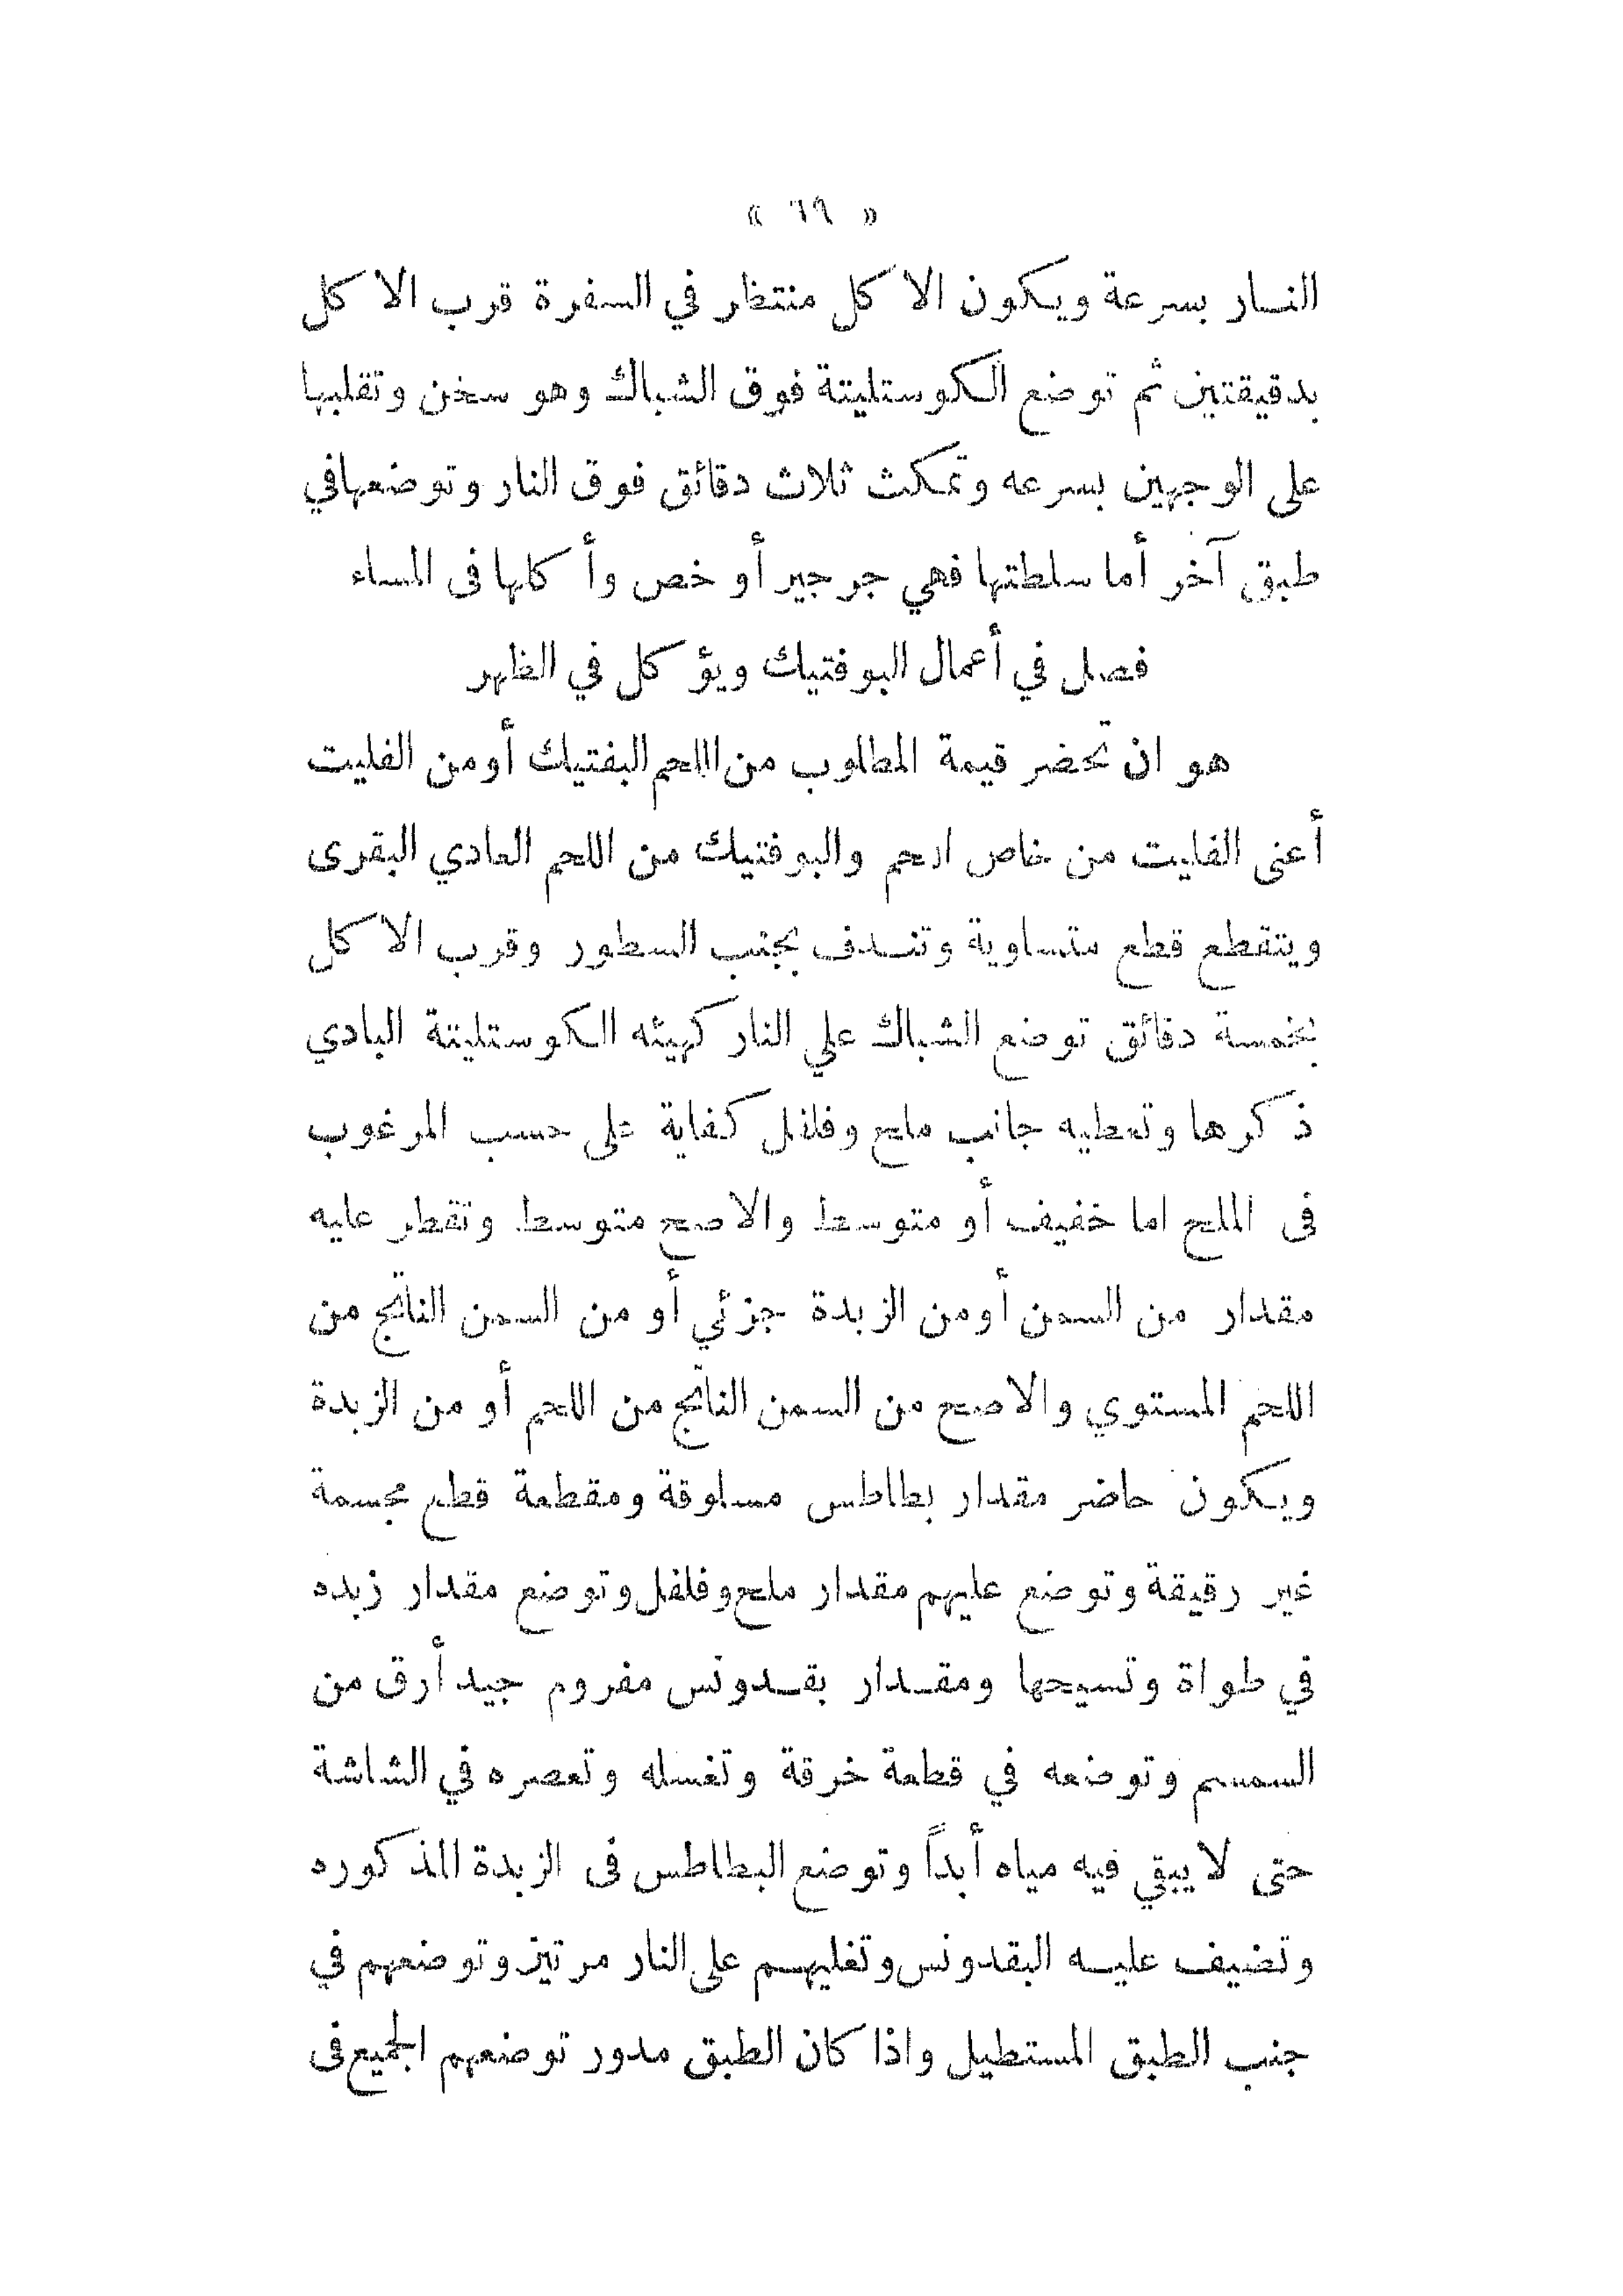 « ٦٩ »
النار بسرعة ويكون الاكل منتظر في السفرة قرب الاكل
بدقيقتين ثم توضع الكوستليتة فوق الشباك وهو سخن وتقلبها
على الوجهين بسرعه وتمكث ثلاث دقائق فوق النار وتوضعها في
طبق آخر أما سلطتها فهي جرجير أو خص وأكلها فى المساء
فصل في أعمال البوفتيك ويؤكل في الظهر
هو ان تحضر قيمة المطلوب من اللحم البفتيك أو من الفليت
أعنى الفليت من خاص اللحم والبوفتيك من اللحم العادي البقرى
ويتقطع قطع متساوية وتندف بجنب السطور وقرب الاكل
بخمسة دقائق توضع الشباك علي النار كهيئه الكوستليتة البادي
ذكرها وتعطيه جانب ملح وفلفل كفاية على حسب المرغوب
فى الملح اما خفيف أو متوسط والاصح متوسط وتقطر عليه
مقدار من السمن أو من الزبدة جزئي أو من السمن الناتج من
اللحم المستوي والاصح من السمن الناتج من اللحم أو من الزبدة
ويكون حاضر مقدار بطاطس مسلوقة ومقطعة قطع مجسمة
غير رقيقة وتوضع عليهم مقدار ملح وفلفل وتوضع مقدار زبده
في طواة وتسيحها ومقدار بقدونس مفروم جيد أرق من
السمسم وتوضعه في قطعة خرقة وتغسله وتعصره في الشاشة
حتى لا يبقي فيه مياه أبداً وتوضع البطاطس فى الزبدة المذكوره
وتضيف عليه البقدونس وتغليهم على النار مرتين وتوضعهم في
جنب الطبق المستطيل واذا كان الطبق مدور توضعهم الجميع فى